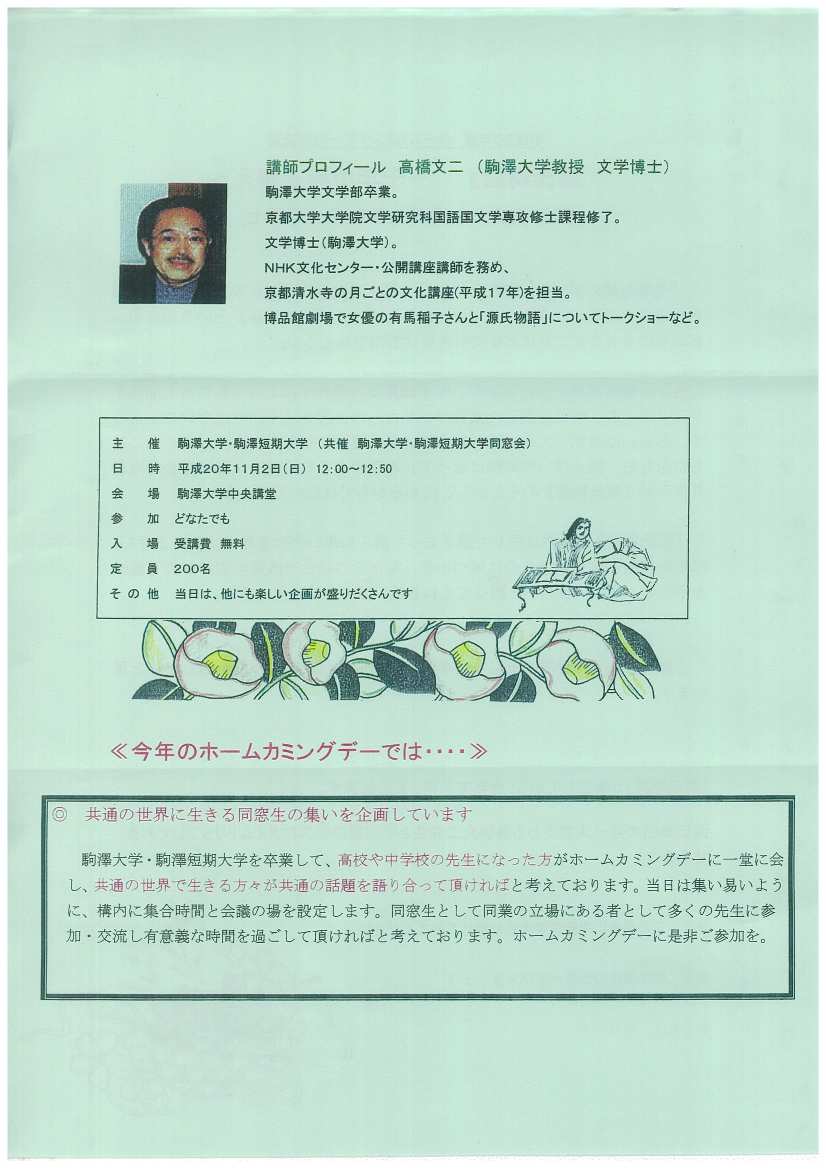 講師プロフィール　高橋文二　（駒澤大学教授　文学博士）
駒澤大学文学部卒業。
京都大学大学院文学研究科国語国文学専攻修士課程修了。
文学博士（駒澤大学）。
NHK文化センター・公開講座講師を務め、
京都清水寺の月ごとの文化講座(平成17年)を担当。
博品館劇場で女優の有馬稲子さんと「源氏物語」についてトークショーなど。
主　催　駒澤大学・駒澤短期大学　（共催　駒澤大学・駒澤短期大学同窓会）
日　時　平成20年11月2日（日）　12:00～12:50
会　場　駒澤大学中央講堂
参　加　どなたでも
入　場　受講費　無料
定　員　200名
その他　当日は、他にも楽しい企画が盛りだくさんです
≪今年のホームカミングデーでは････≫
◎　共通の世界に生きる同窓生の集いを企画しています
駒澤大学・駒澤短期大学を卒業して、高校や中学校の先生になった方がホームカミングデーに一堂に会
し、共通の世界で生きる方々が共通の話題を語り合って頂ければと考えております。当日は集い易いよう
に、構内に集合時間と会議の場を設定します。同窓生として同業の立場にある者として多くの先生に参
加・交流し有意義な時間を過ごして頂ければと考えております。ホームカミングデーに是非ご参加を。